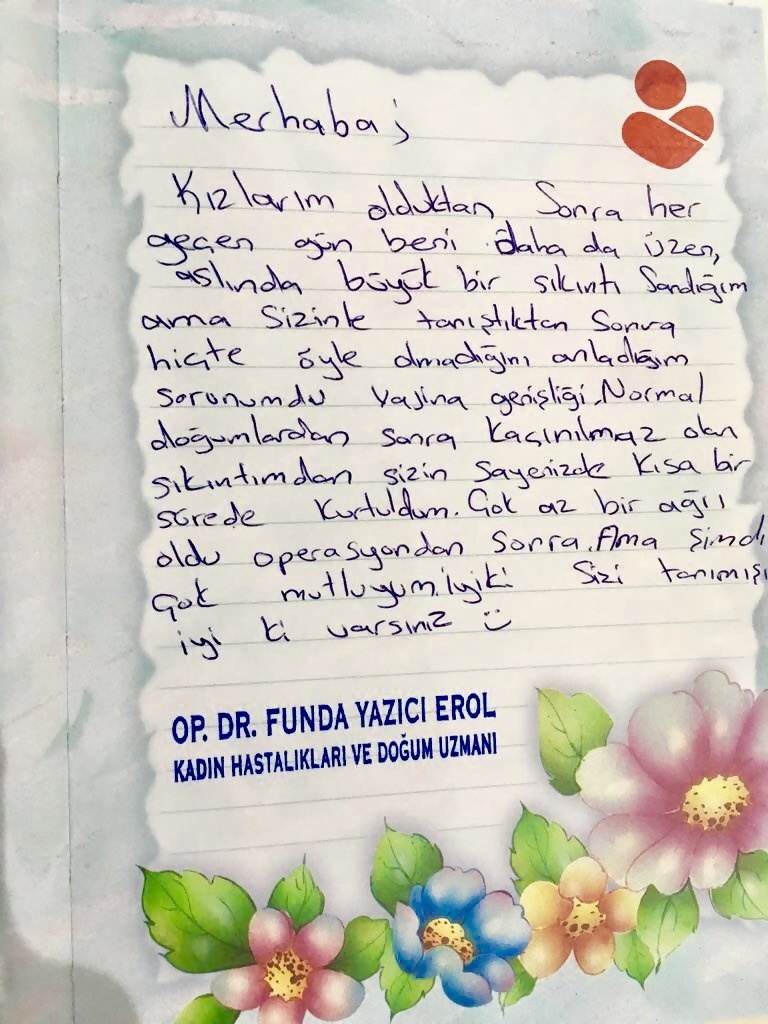 Merhaba;
Kızlarım olduktan Sonra her
geçen gün beni daha da üzen,
aslında büyük bir sıkıntı Sandığım
ama Sizinle tanıştıktan Sonra
hiçte öyle olmadığını anladığım
sorunumdu vajina genişliği. Normal
doğumlardan sonra kaçınılmaz olan
sıkıntımdan sizin sayenizde kısa bir
sürede kurtuldum. Çok az bir ağrı
oldu operasyondan sonra. Ama şimdi
Çok mutluyum. iyiki Sizi tanımışı
iyi ki varsınız
OP. DR. FUNDA YAZICI EROL
KADIN HASTALIKLARI VE DOĞUM UZMANI